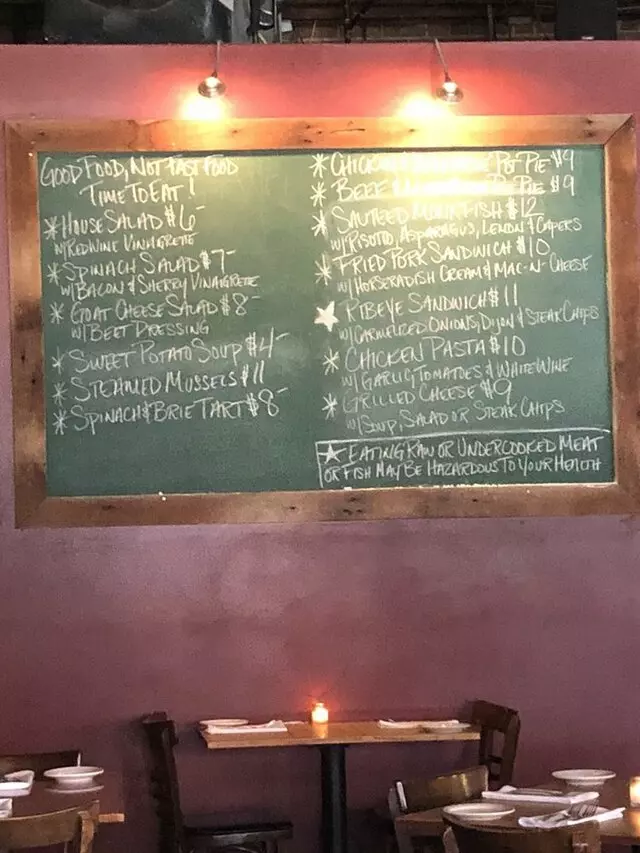 Good Food, Not Fast Food
Time To Eat!
* House Salad $6-
w/ Red Wine Vinaigrette
* Spinach Salad $7-
w/ Bacon & Sherry Vinaigrette
* Goat Cheese Salad $8-
w/ Beet Dressing
* Sweet Potato Soup $4-
* Steamed Mussels $11-
* Spinach & Brie Tart $8-
* Chicken Pot Pie $9
* Beef Pie $9
* Sauteed Monkfish $12
w/ Risotto, Asparagus, Lemon & Capers
* Fried Pork Sandwich $10
w/ Horseradish Cream & Mac-N-Cheese
★ Ribeye Sandwich $11
w/ Carmelized Onions, Dijon & Steak Chips
* Chicken Pasta $10
w/ Garlic, Tomatoes & White Wine
* Grilled Cheese $9
w/ Soup, Salad or Steak Chips
★ Eating Raw or Undercooked Meat
or Fish May Be Hazardous To Your Health